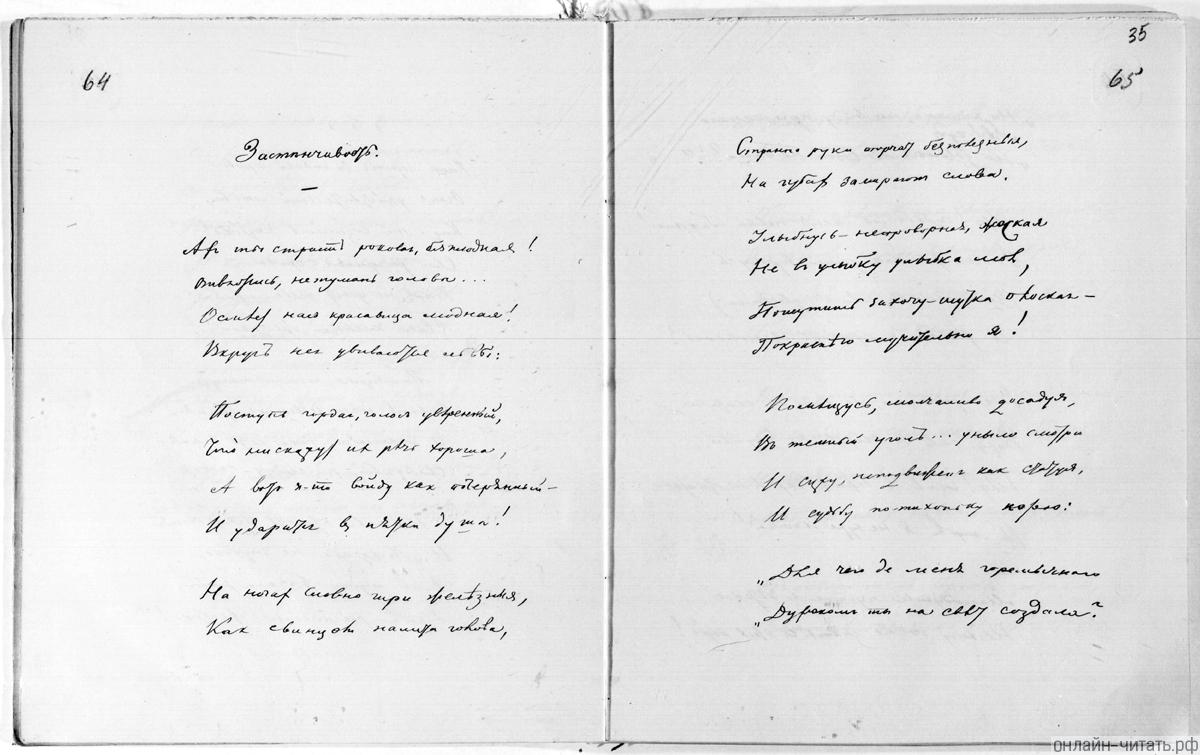 64
Застѣнчивость.
Ахъ ты страсть роковая, безплодная!
Отвяжись, не тумань головы...
Осмѣетъ насъ красавица модная!
Вкругъ нея увиваются львы:
Поступь гордая, голосъ увѣренный,
Что ни скажутъ их рѣчь хороша,
А вотъ я-то войду как потерянный –
И ударится в пятки душа!
На ногахъ словно гири желѣзныя,
Какъ свинцомъ налита голова,
35
65
Странно руки торчатъ безполезныя,
На губахъ замираютъ слова.
Улыбнусь – непроворная, жесткая
Не в улыбку улыбка моя,
Пошутить захочу – шутка плоская –
Покраснѣю мучительно я!
Помѣщусь, молчаливо досадуя,
Въ темный уголъ... уныло смотрю
И сижу, неподвиженъ как статуя,
И судьбу потихоньку корю:
„Для чего-де меня горемычнаго
„Дуракомъ ты на свѣтъ создала?
онлайн-читать.рф